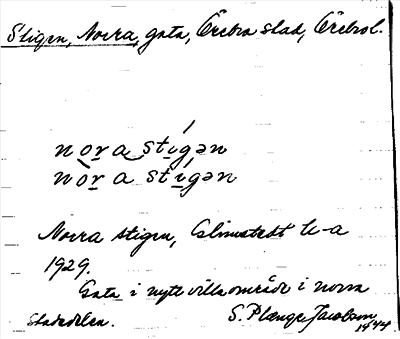 Stigen, Norra, gata, Örebro stad, Örebro l.
nọr a stígən
nòr a stígən
Norra stigen, Almstedt K-a
1929.
Gata i nytt villaområde i norra
stadsdelen. S. Plænge Jacobson
1944